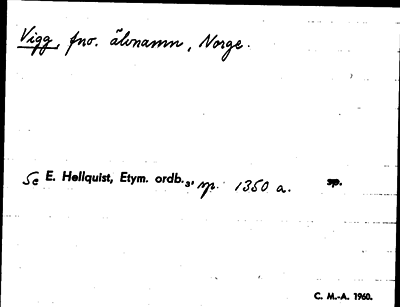 Vigg, fno. älvnamn, Norge.
Se E. Hellquist, Etym. ordb.₃, sp. 1350 a. sp.
C. M.-A. 1960.